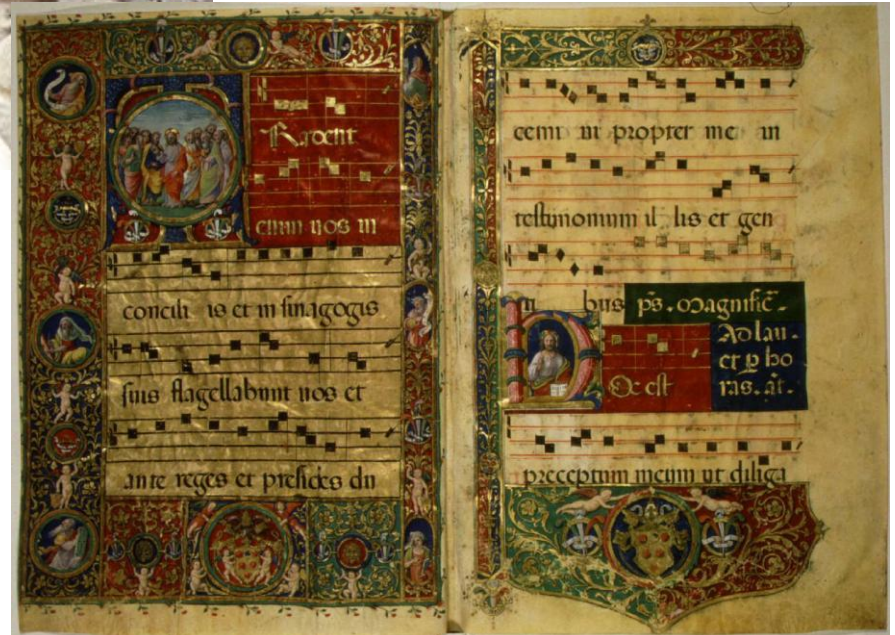 TRadent
enim uos in
concili is et in sinagogis
suis flagellabunt uos et
ante reges et presides du
cemi ni propter me in
testimonium il lis et gen
ti bus p̄s. Magnific̄.
HOc est
Ad lau-
et ꝑ ho
ras. an̄.
preceptum meum ut diliga